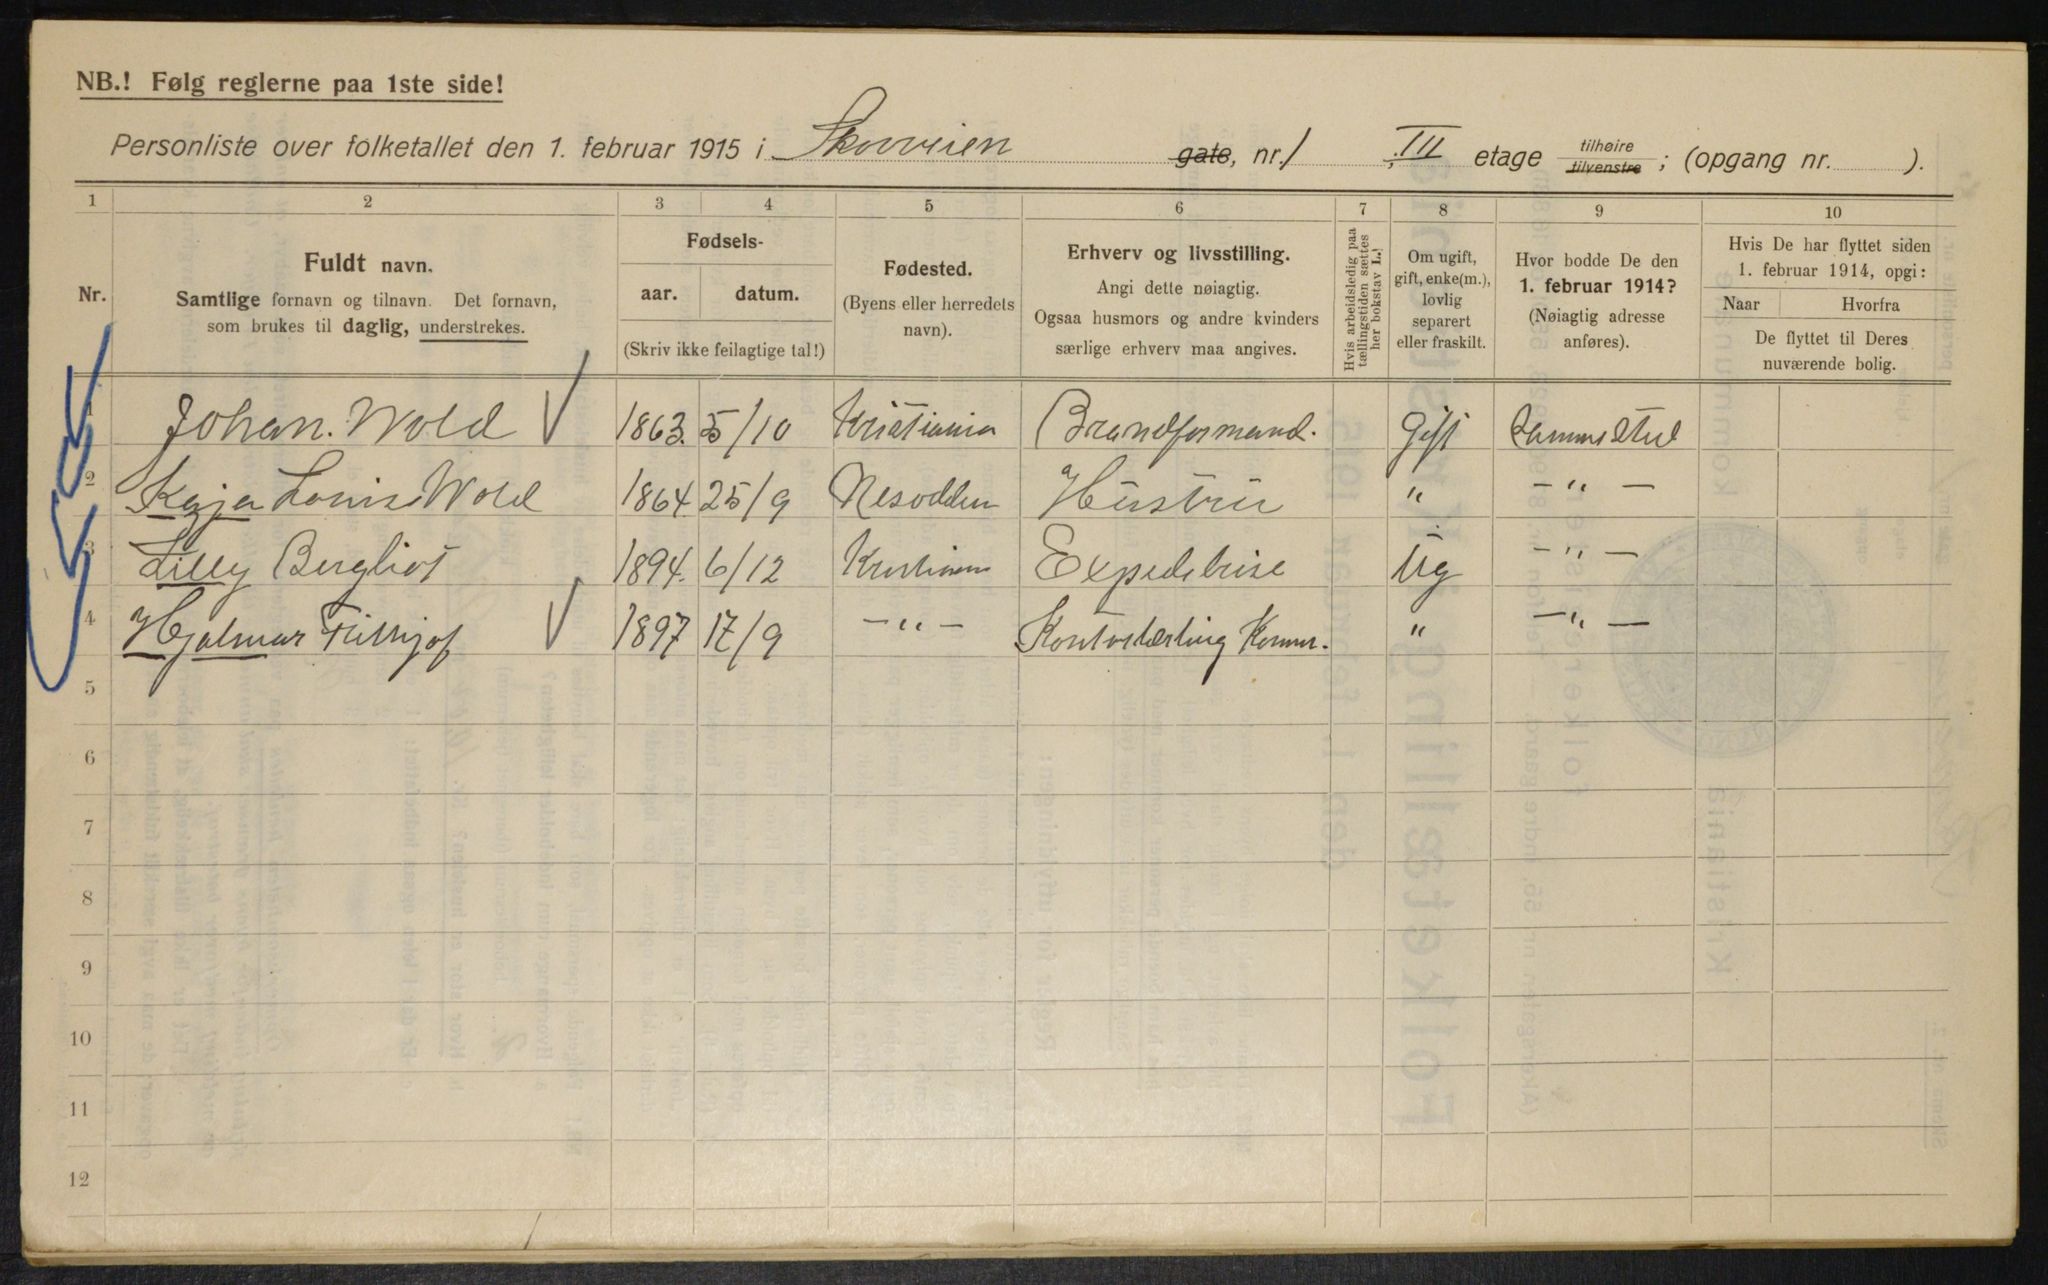 NB.! Følg reglerne paa 1ste side!
Personliste over folketallet den 1. februar 1915 i Skovveien gate, nr. 1, III etage tilhøire tilvenstre; (opgang nr. ).
1 2 3 4 5 6 7 8 9 10
Nr.
Fuldt navn.
Samtlige fornavn og tilnavn. Det fornavn,
som brukes til daglig, understrekes.
Fødsels-
aar. datum.
(Skriv ikke feilagtige tal!)
Fødested.
(Byens eller herredets
navn).
Erhverv og livsstilling.
Angi dette nøiagtig.
Ogsaa husmors og andre kvinders
særlige erhverv maa angives.
Hvis arbeidsledig paa
tællingstiden sættes
her bokstav L.!
Om ugift,
gift, enke(m.),
lovlig
separert
eller fraskilt.
Hvor bodde De den
1. februar 1914?
(Nøiagtig adresse
anføres).
Hvis De har flyttet siden
1. februar 1914, opgi:
Naar Hvorfra
De flyttet til Deres
nuværende bolig.
1 Johan. Wold 1863. 5/10 Kristiania Brandformand. Gift Samme Sted
2 Kaja Louise Wold 1864 25/9 Nesodden Hustru " – " –
3 Lilly Bergliot 1894. 6/12 Kristiania Expeditrise Ug – " –
4 Hjalmar Frithjof 1897 17/9 – " – Kontorlærling Komm. " – " –
5
6
7
8
9
10
11
12